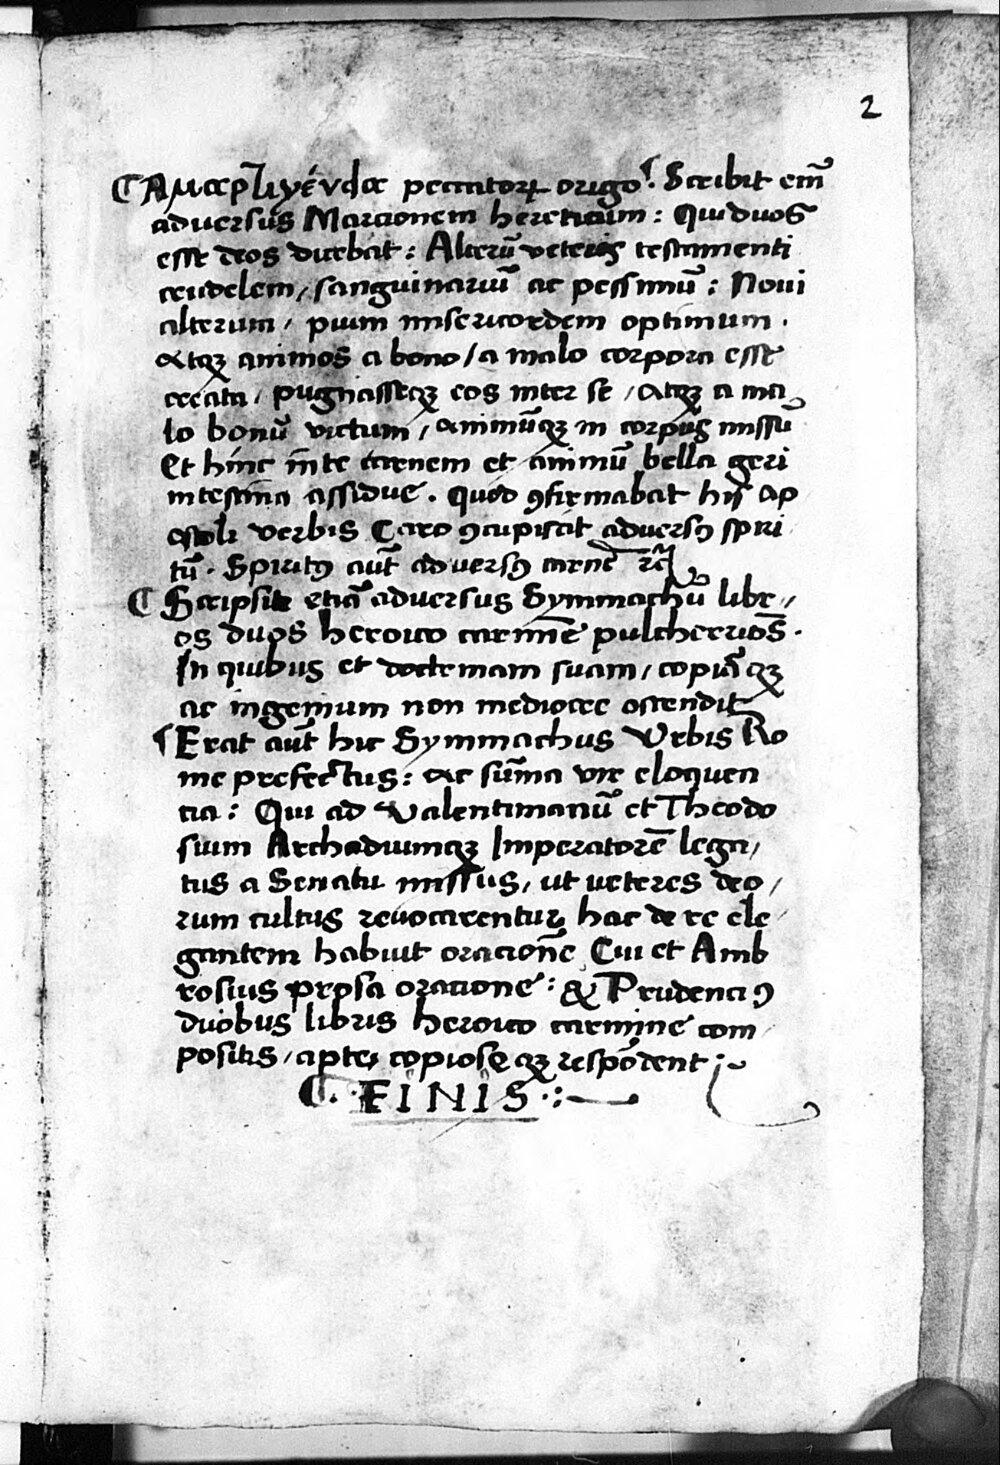 2
Αμαρτιγένια peccatoꝝ origo. Scribit em̄
adversus Marcionem hereticum: Qui duos
esse deos dicebat: Alterū veteris testamenti
crudelem, sanguinariū ac pessimū: Noui
alterum, pium misericordem optimum.
Atqꝫ animos a bono / a malo corpora esse
creata, pugnasseqꝫ eos inter se, atqꝫ a ma
lo bonū victum, animūqꝫ in corpus missū
Et hinc īter carnem et animū bella geri
intestina assidue. Quod ꝯfirmabat his ap
ostoli verbis Caro ꝯcupiscit adversꝰ spiri
tū. Spiritꝰ aūt adversꝰ carnē rc̄
Scripsit etiā adversus Symmachū libr
os duos heroico carmīe pulcherrimos.
In quibus et doctrinam suam, copiāqꝫ
ac ingenium non mediocre ostendit
Erat aūt hic Symmachus Urbis Ro
me prefectus: ac sūma vir eloquen
tia: Qui ad Valentinianū et Theodo
sium Archadiumqꝫ Imperatorē lega,
tus a Senatu missus, ut veteres deo,
rum cultus reuocarentur hac de re ele
gantem habuit oracionē Cui et Amb
rosius prosa oratione: & Prudenciꝯ
duobus libris heroico carmine com
positis, apte, copioseqꝫ respōdent
FINIS